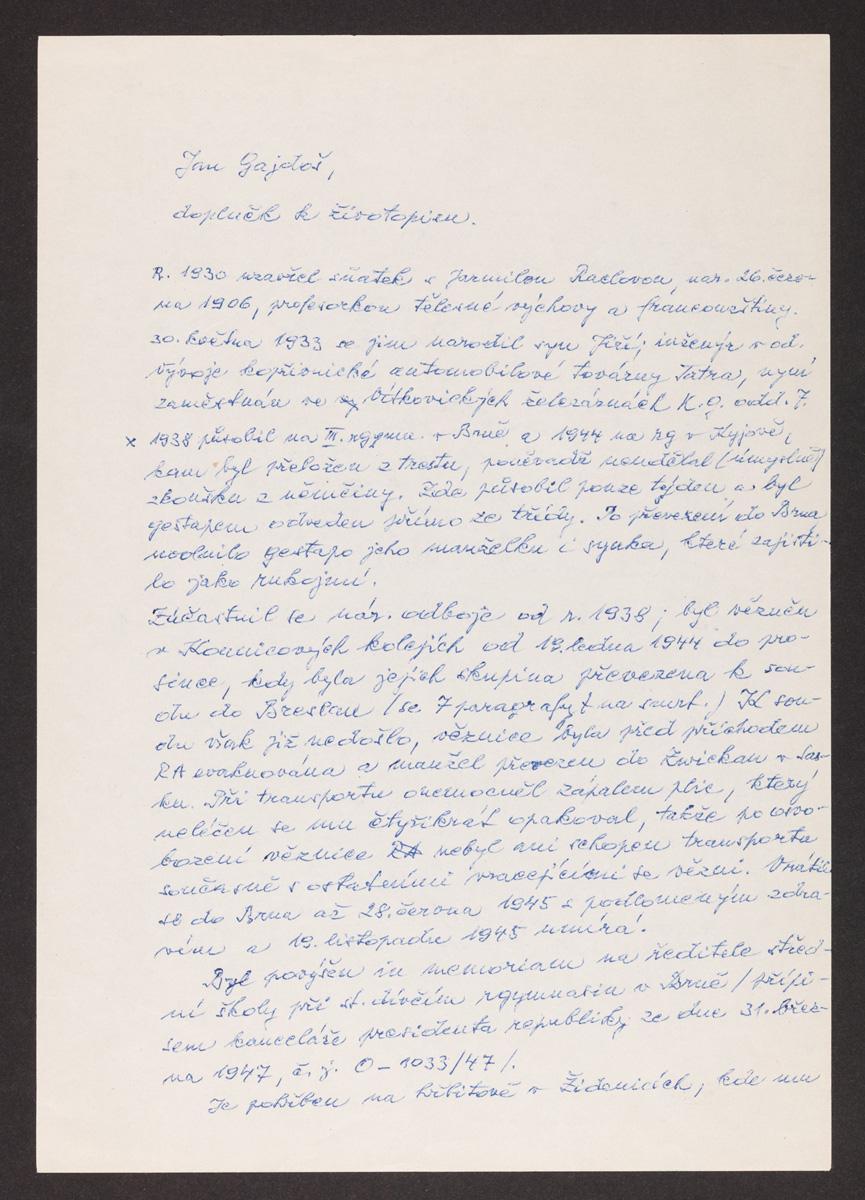 Jan Gajdoš,
doplněk k životopisu.
R. 1930 uzavřel sňatek s Jarmilou Raclovou, nar. 26. červ-
na 1906, profesorkou tělesné výchovy a francouzštiny.
30. května 1933 se jim narodil syn Jiří; inženýr v od.
vývoje kopřivnické automobilové továrny Tatra, nyní
zaměstnán ve Vítkovických železárnách K.G. odd. 7.
x 1938 působil na III. rgymn. v Brně a 1944 na rg v Kyjově,
kam byl přeložen z trestu, poněvadž neudělal (úmyslně)
zkoušku z němčiny. Zde působil pouze týden a byl
gestapem odveden přímo ze třídy. Po převezení do Brna
uvolnilo gestapo jeho manželku i synka, které zajisti-
lo jako rukojmí.
Zúčastnil se nár. odboje od r. 1938; byl vězněn
v Kounicových kolejích od 19. ledna 1944 do pro-
since, kdy byla jejich skupina převezena k sou-
du do Breslau (se 7 paragrafy na smrt.) K sou-
du však již nedošlo, věznice byla před příchodem
RA evakuována a manžel převezen do Zwickau v Sas-
ku. Při transportu onemocněl zápalem plic, který
neléčen se mu čtyřikrát opakoval, takže po osvo-
bození věznice RA nebyl ani schopen transportu
současně s ostatními vracejícími se vězni. Vrátil
se do Brna až 28. června 1945 s podlomeným zdra-
vím a 19. listopadu 1945 umírá.
Byl povýšen in memoriam na ředitele střed-
ní školy při st. dívčím rgymnasiu v Brně / přípi-
sem kanceláře presidenta republiky ze dne 31. břez-
na 1947, č. j. O-1033/47/.
Je pohřben na hřbitově v Židenicích, kde mu